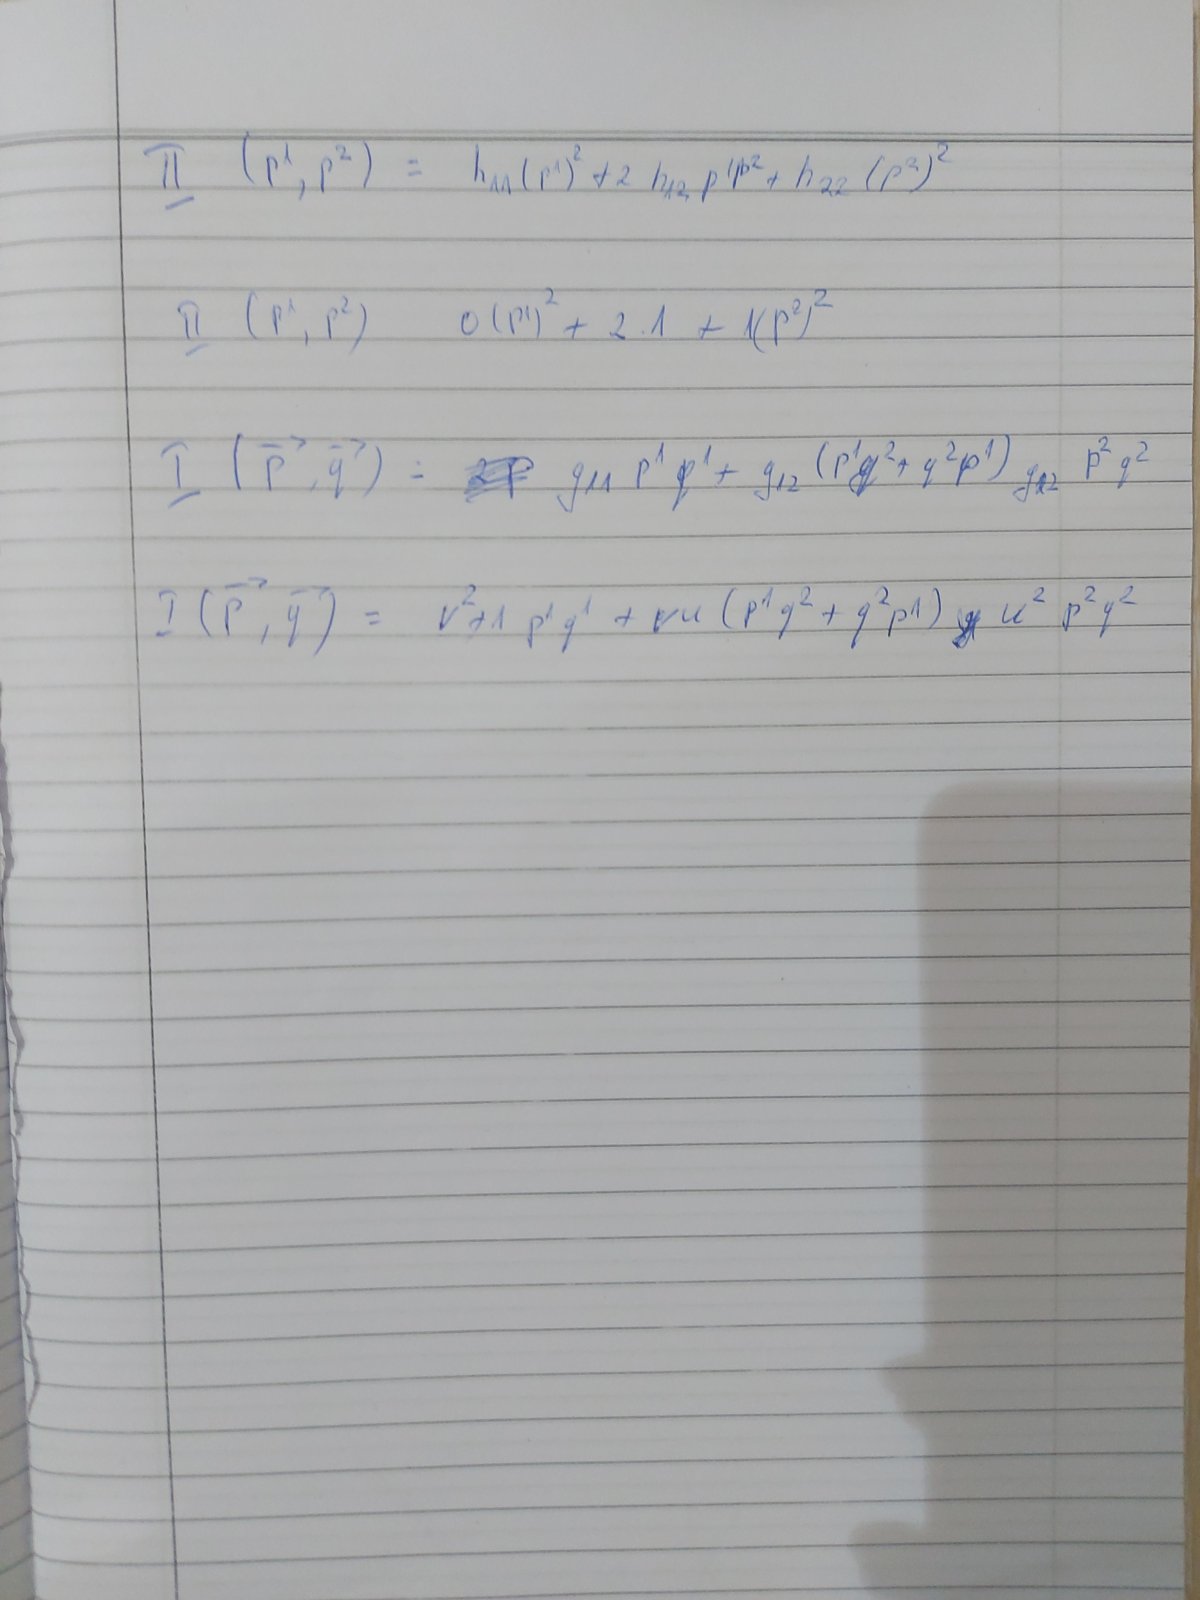 II (p¹, p²) = h₁₁(p¹)² + 2 h₁₂ p¹p² + h₂₂ (p²)²
II (p¹, p²) 0(p¹)² + 2.1 + 1(p²)²
I (p⃗, q⃗) = g₁₁ p¹ q¹ + g₁₂ (p¹q² + q²p¹) g₂₂ p² q²
I (p⃗, q⃗) = v²+1 p¹q¹ + vu (p¹q² + q²p¹) u² p²q²